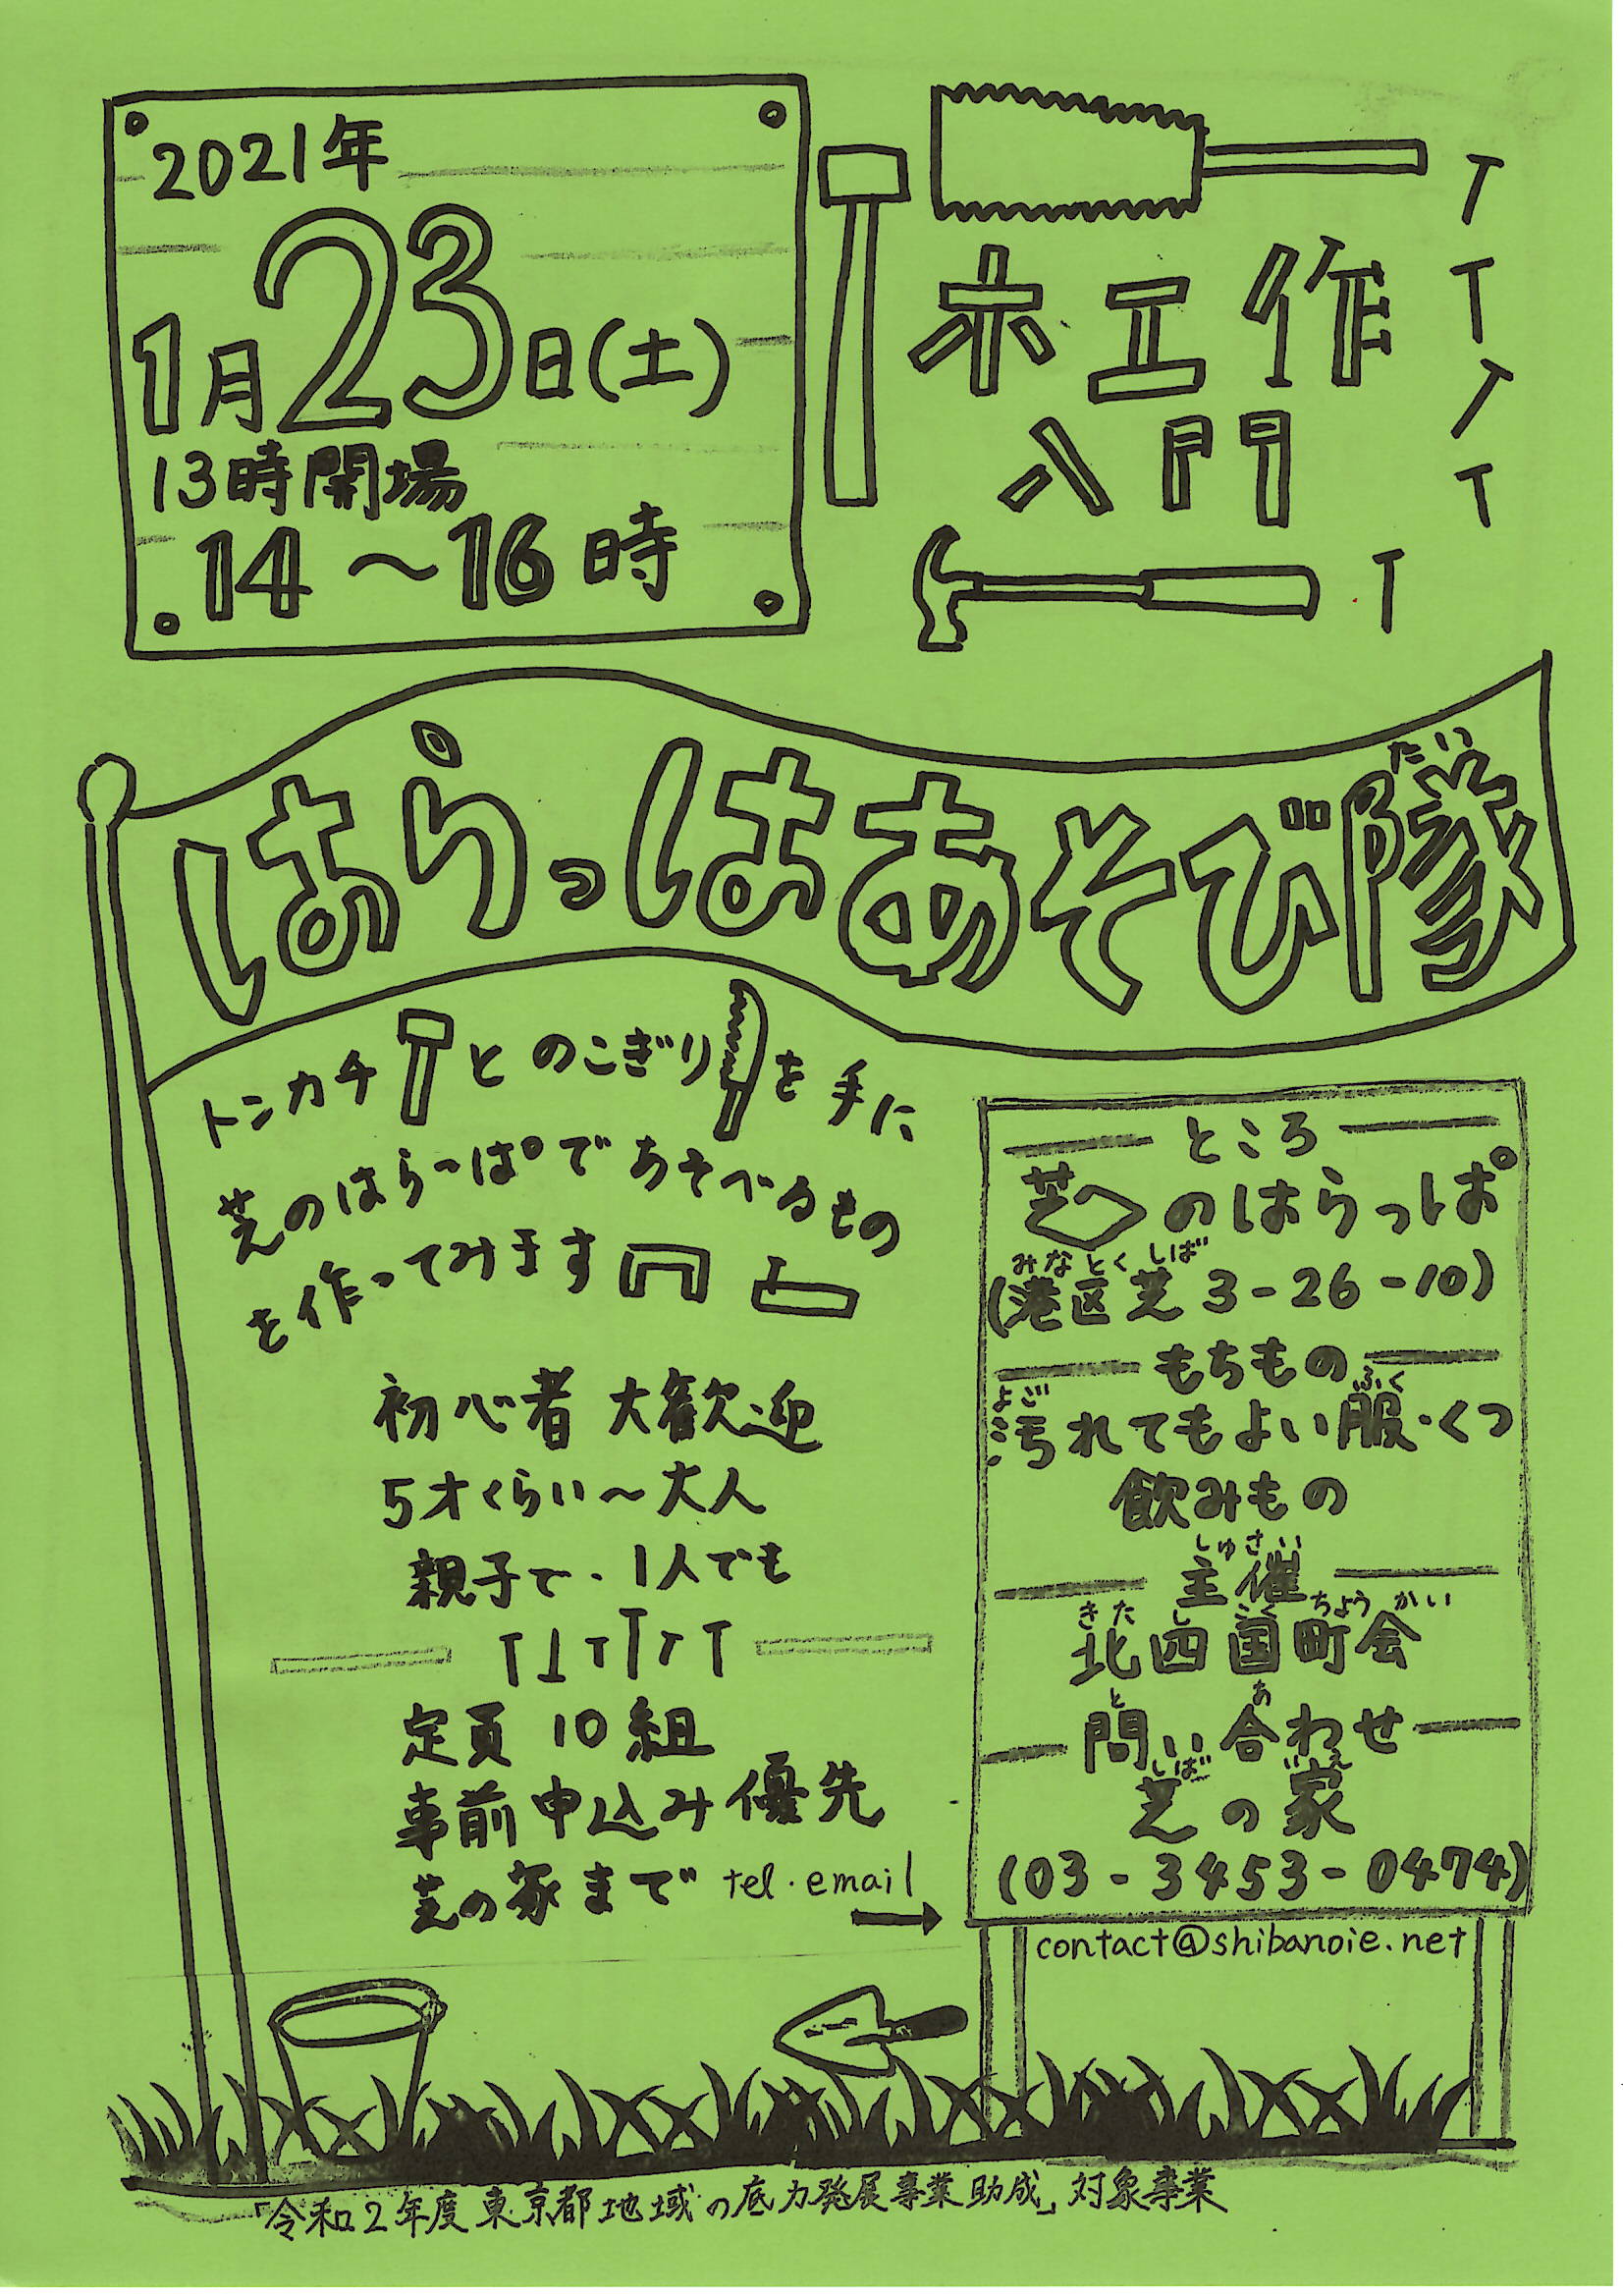 2021年
1月23日(土)
13時開場
14〜16時
木工作
入門
はらっぱあそび隊
たい
トンカチとのこぎりを手に
芝のはらっぱであそべるもの
を作ってみます
初心者 大歓迎
5才くらい〜大人
親子で・1人でも
定員 10組
事前申込み優先
芝の家まで tel・email
ところ
芝のはらっぱ
みなとくしば
(港区芝3-26-10)
もちもの
よご ふく
汚れてもよい服・くつ
飲みもの
しゅさい
主催
きたしこくちょうかい
北四国町会
と あ
問い合わせ
しば いえ
芝の家
(03-3453-0474)
contact@shibanoie.net
「令和2年度東京都地域の底力発展事業助成」対象事業